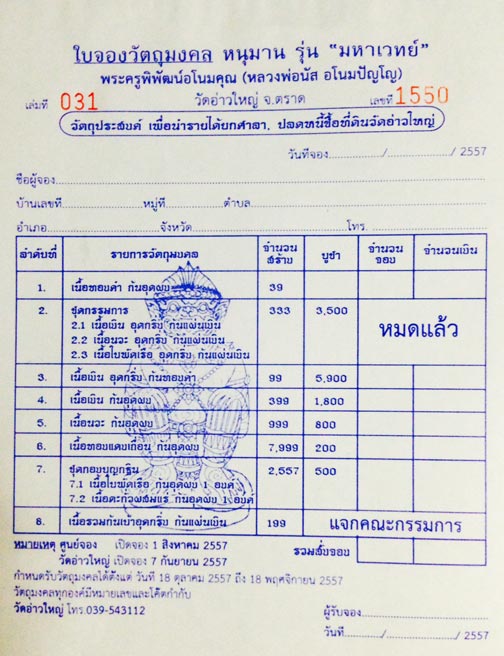 ใบจองวัตถุมงคล หนุมาน รุ่น "มหาเวทย์"
พระครูพิพัฒน์อโนมคุณ (หลวงพ่อนัส อโนมปัญโญ)
เล่มที่ 031 วัดอ่าวใหญ่ จ.ตราด เลขที่ 1550
วัตถุประสงค์ เพื่อนำรายได้ยกศาลา, ปลดหนี้ซื้อที่ดินวัดอ่าวใหญ่
วันที่จอง............/............/ 2557
ชื่อผู้จอง
บ้านเลขที่ หมู่ที่ ตำบล
อำเภอ จังหวัด โทร.
ลำดับที่ รายการวัตถุมงคล จำนวนสร้าง บูชา จำนวนจอง จำนวนเงิน
1. เนื้อทองคำ ก้นอุดผง 39
2. ชุดกรรมการ 333 3,500 หมดแล้ว
2.1 เนื้อเงิน อุดกริ่ง ก้นแผ่นเงิน
2.2 เนื้อนวะ อุดกริ่ง ก้นแผ่นเงิน
2.3 เนื้อใบพัดเรือ อุดกริ่ง ก้นแผ่นเงิน
3. เนื้อเงิน อุดกริ่ง ก้นทองคำ 99 5,900
4. เนื้อเงิน ก้นอุดผง 399 1,800
5. เนื้อนวะ ก้นอุดผง 999 800
6. เนื้อทองแดงเถื่อน ก้นอุดผง 7,999 200
7. ชุดกองบุญกฐิน 2,557 500
7.1 เนื้อใบพัดเรือ ก้นอุดผง 1 องค์
7.2 เนื้อตะกั่วผสมแร่ ก้นอุดผง 1 องค์
8. เนื้อรวมก้นเบ้าอุดกริ่ง ก้นแผ่นเงิน 199 แจกคณะกรรมการ
หมายเหตุ ศูนย์จอง เปิดจอง 1 สิงหาคม 2557 รวมสั่งจอง
วัดอ่าวใหญ่ เปิดจอง 7 กันยายน 2557
กำหนดรับวัตถุมงคลได้ตั้งแต่ วันที่ 18 ตุลาคม 2557 ถึง 18 พฤศจิกายน 2557
วัตถุมงคลทุกองค์มีหมายเลขและโค๊ตกำกับ
วัดอ่าวใหญ่ โทร.039-543112 ผู้รับจอง
วันที่............/............/ 2557